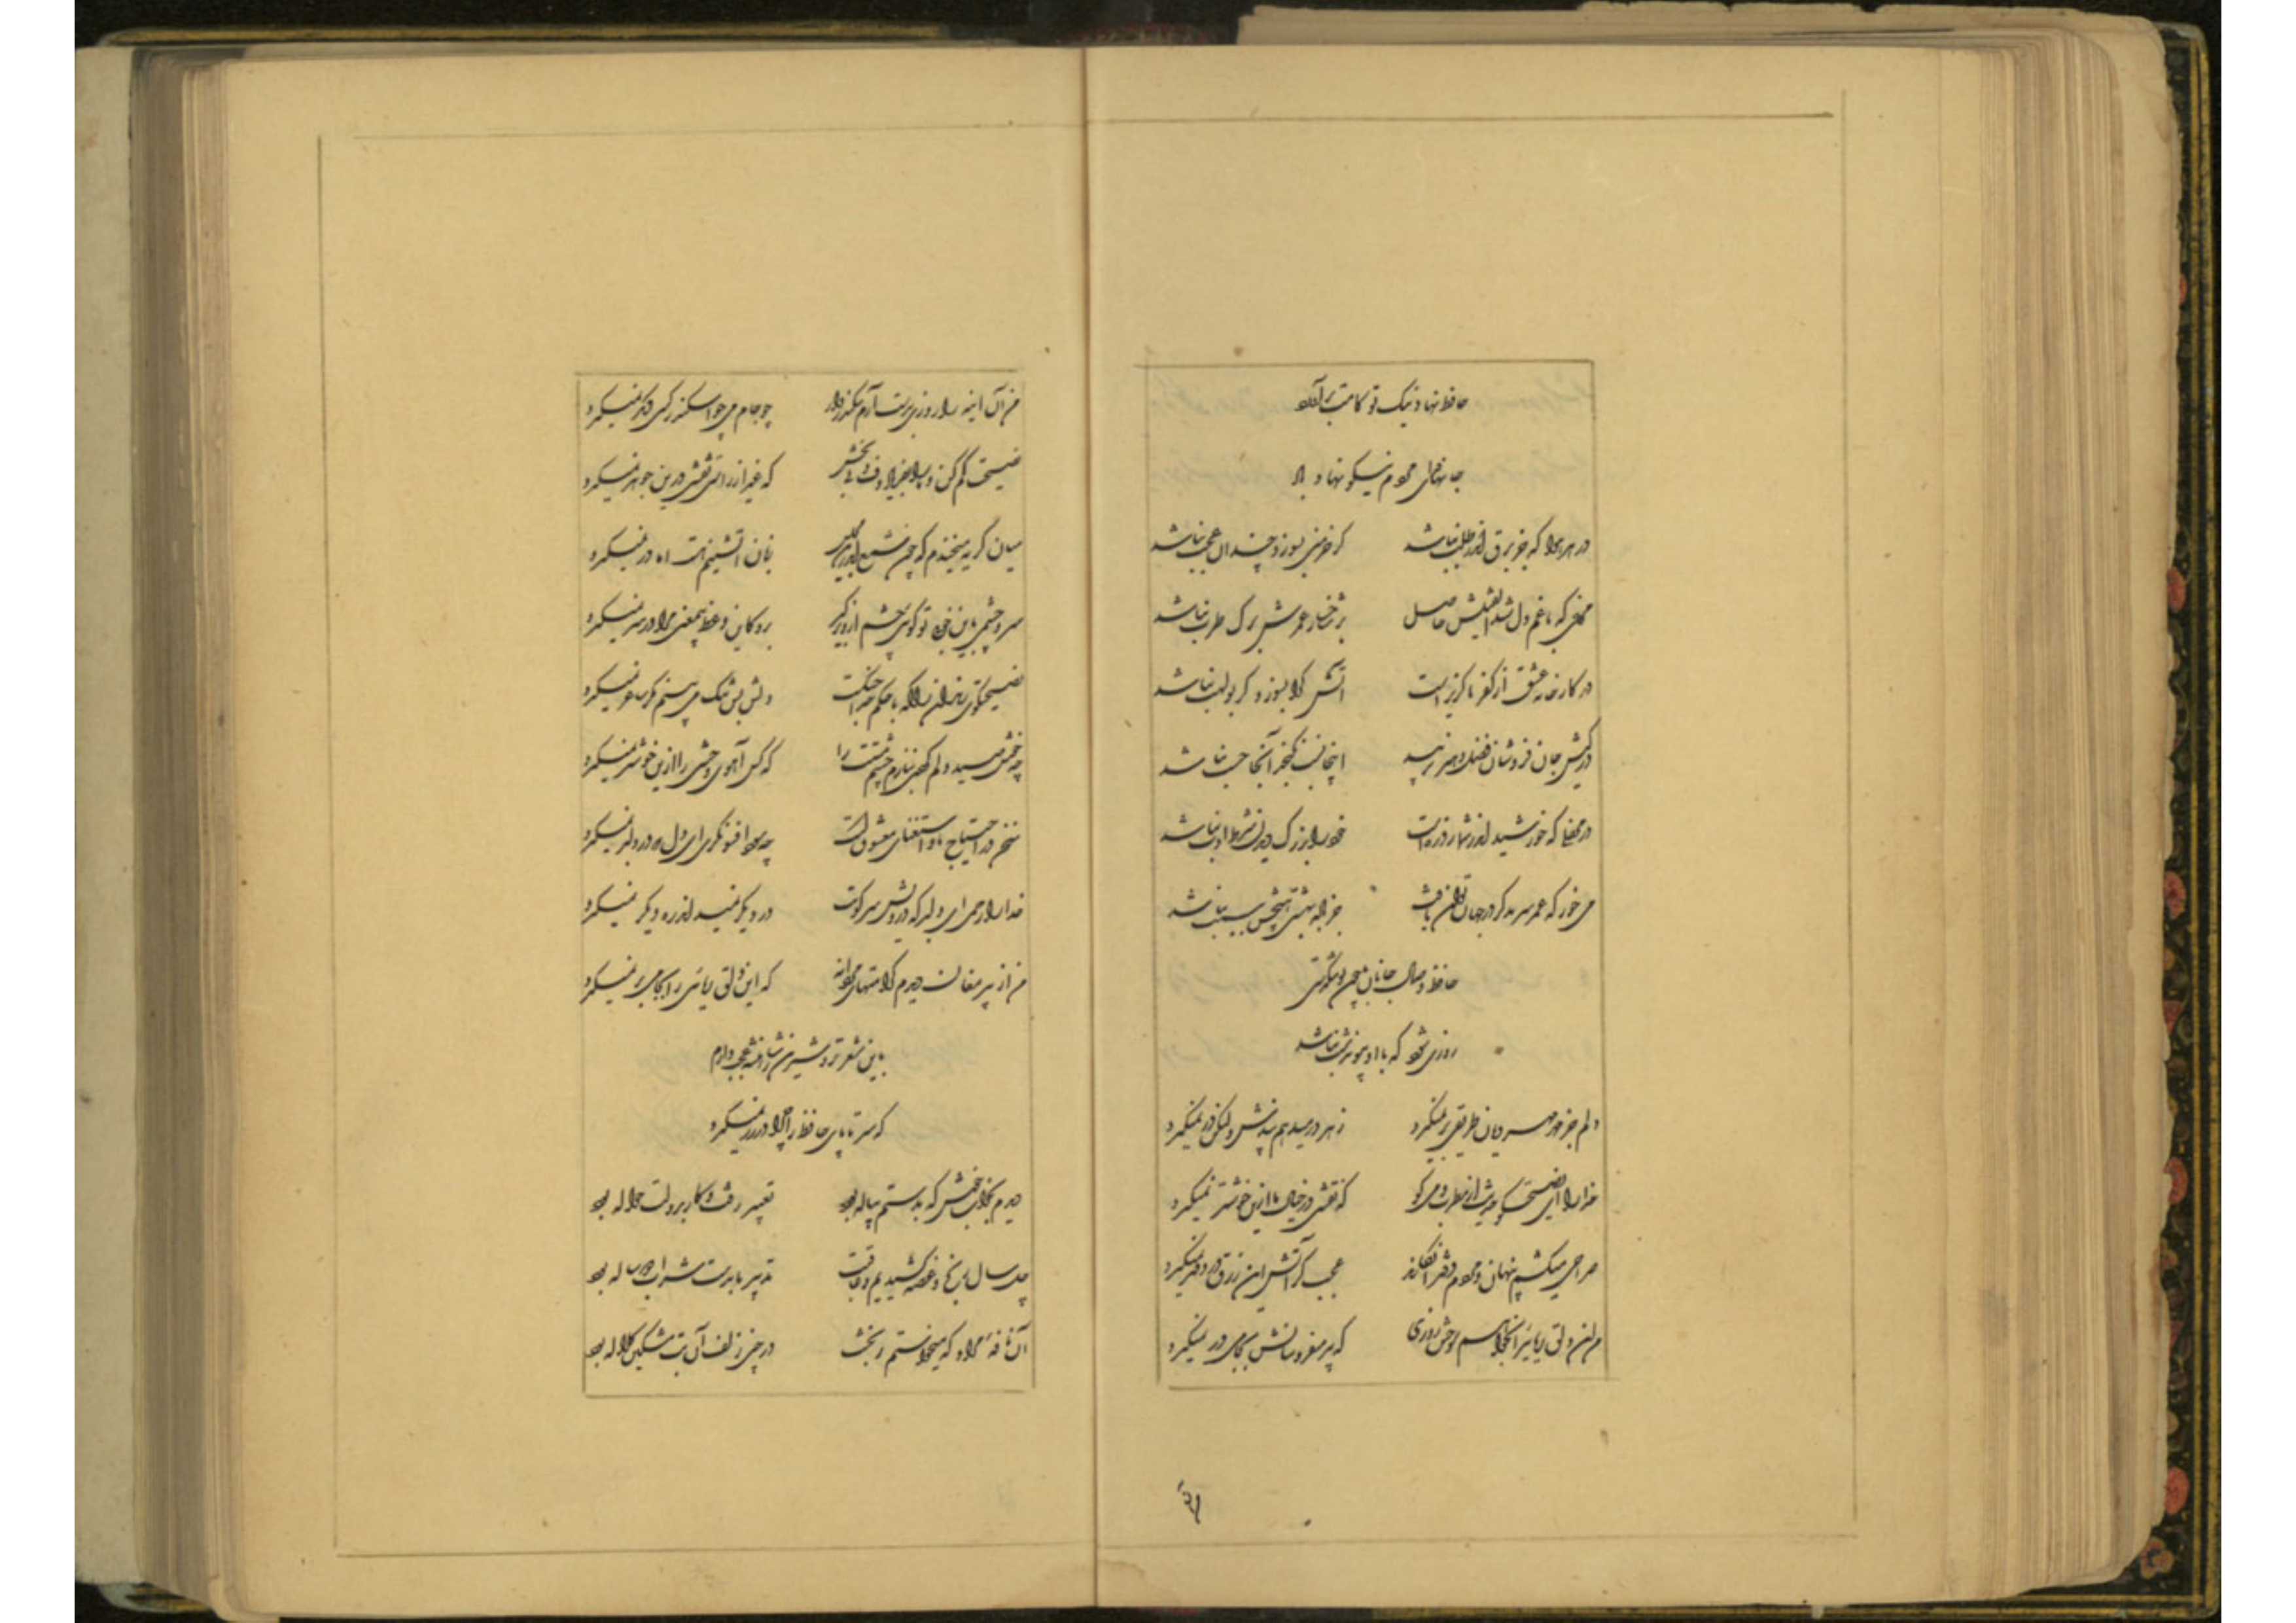 حافظ نهاد نیک تو کامت برآورد
جانها فدای مردم نیکو نهاد باد
در هر هوا که جز برق اندر طلب نباشد گر خرمنی بسوزد چندان عجب نباشد
مرغی که با غم دل شد الفتیش حاصل بر شاخسار عمرش برگ طرب نباشد
در کارخانه عشق از کفر ناگزیر است آتش کرا بسوزد گر بولهب نباشد
در کیش جان فروشان فضل و هنر نزیبد اینجا نسب نگنجد آنجا حسب نباشد
در محفلی که خورشید اندر شمار ذره است خود را بزرگ دیدن شرط ادب نباشد
می خور که عمر سرمد گر در جهان توان یافت جز باده بهشتی هیچش سبب نباشد
حافظ وصال جانان با چون تو تنگدستی
روزی شود که با او پیوند شب نباشد
دلم جز مهر مه رویان طریقی بر نمیگیرد ز هر در میدهم پندش ولیکن در نمیگیرد
خدا را ای نصیحتگو حدیث از مطرب و می گو که نقشی در خیال ما ازین خوشتر نمیگیرد
صراحی میکشم پنهان و مردم دفتر انگارند عجب گر آتش این زرق در دفتر نمیگیرد
من این دلق ریائی را بخواهم سوختن روزی که پیر میفروشانش بجامی در نمیگیرد
من آن اینه را روزی بدست آرم سکندروار چو جام می جز اسکندر کسی دیگر نمیگیرد
نصیحت کم کن و ما را بفریاد دف و نی بخش که غیر از راستی نقشی درین جوهر نمیگیرد
میان گریه میخندم که چون شمع اندرین مجلس زبان آتشینم هست اما در نمیگیرد
سر و چشمی باین خوبی تو گوئی چشم ازو برگیر برو کاین وعظ بیمعنی مرا در سر نمیگیرد
نصیحتگوی رندان را که با حکم خدا جنگست دلش بس تنگ می بینم مگر ساغر نمیگیرد
چه خوش صید دلم کردی بنازم چشم مستت را که کس آهوی وحشی را ازین خوشتر نمیگیرد
سخن در احتیاج ما و استغنای معشوقست چه سود افسونگری ای دل که در دلبر نمیگیرد
خدا را رحمی ای دلبر که درویش سر کویت در دیگر نمیداند ره دیگر نمیگیرد
من از پیر مغان دیدم کرامتهای مردانه که این دلق ریائی را بجامی بر نمیگیرد
باین شعر تر و شیرین ز شاهنشه عجب دارم
که سر تا پای حافظ را چرا در زر نمیگیرد
دیدم بخواب خوش که بدستم پیاله بود تعبیر رفت و کار بدولت حواله بود
چل سال رنج و غصه کشیدیم و عاقبت تدبیر ما بدست شراب دو ساله بود
آن نافه مراد که میخواستم ز بخت در چین زلف آن بت مشکین کلاله بود